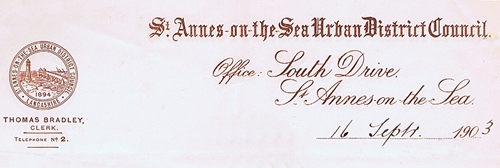 St. Annes-on-the-Sea Urban District Council.
Office: South Drive,
St. Annes on the Sea.
16 Septr. 1903
ST ANNES-ON-THE-SEA URBAN DISTRICT COUNCIL
1894
LANCASHIRE
THOMAS BRADLEY,
CLERK.
TELEPHONE No 2.